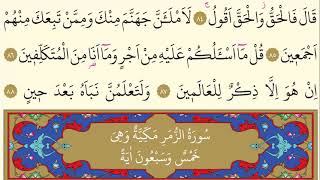 قَالَ فَالْحَقُّ وَالْحَقَّ اَقُولُ ۚ ٨٤ لَاَمْلَـَٔنَّ جَهَنَّمَ مِنْكَ وَمِمَّنْ تَبِعَكَ مِنْهُمْ
اَجْمَع۪ينَ ٨٥ قُلْ مَٓا اَسْـَٔلُكُمْ عَلَيْهِ مِنْ اَجْرٍ وَمَٓا اَنَا۬ مِنَ الْمُتَكَلِّف۪ينَ ٨٦
اِنْ هُوَ اِلَّا ذِكْرٌ لِلْعَالَم۪ينَ ٨٧ وَلَتَعْلَمُنَّ نَبَاَهُ بَعْدَ ح۪ينٍ ٨٨
سُورَةُ الزُّمَرِ مَكِّيَّةٌ وَهِىَ
خَمْسٌ وَسَبْعُونَ اٰيَةً